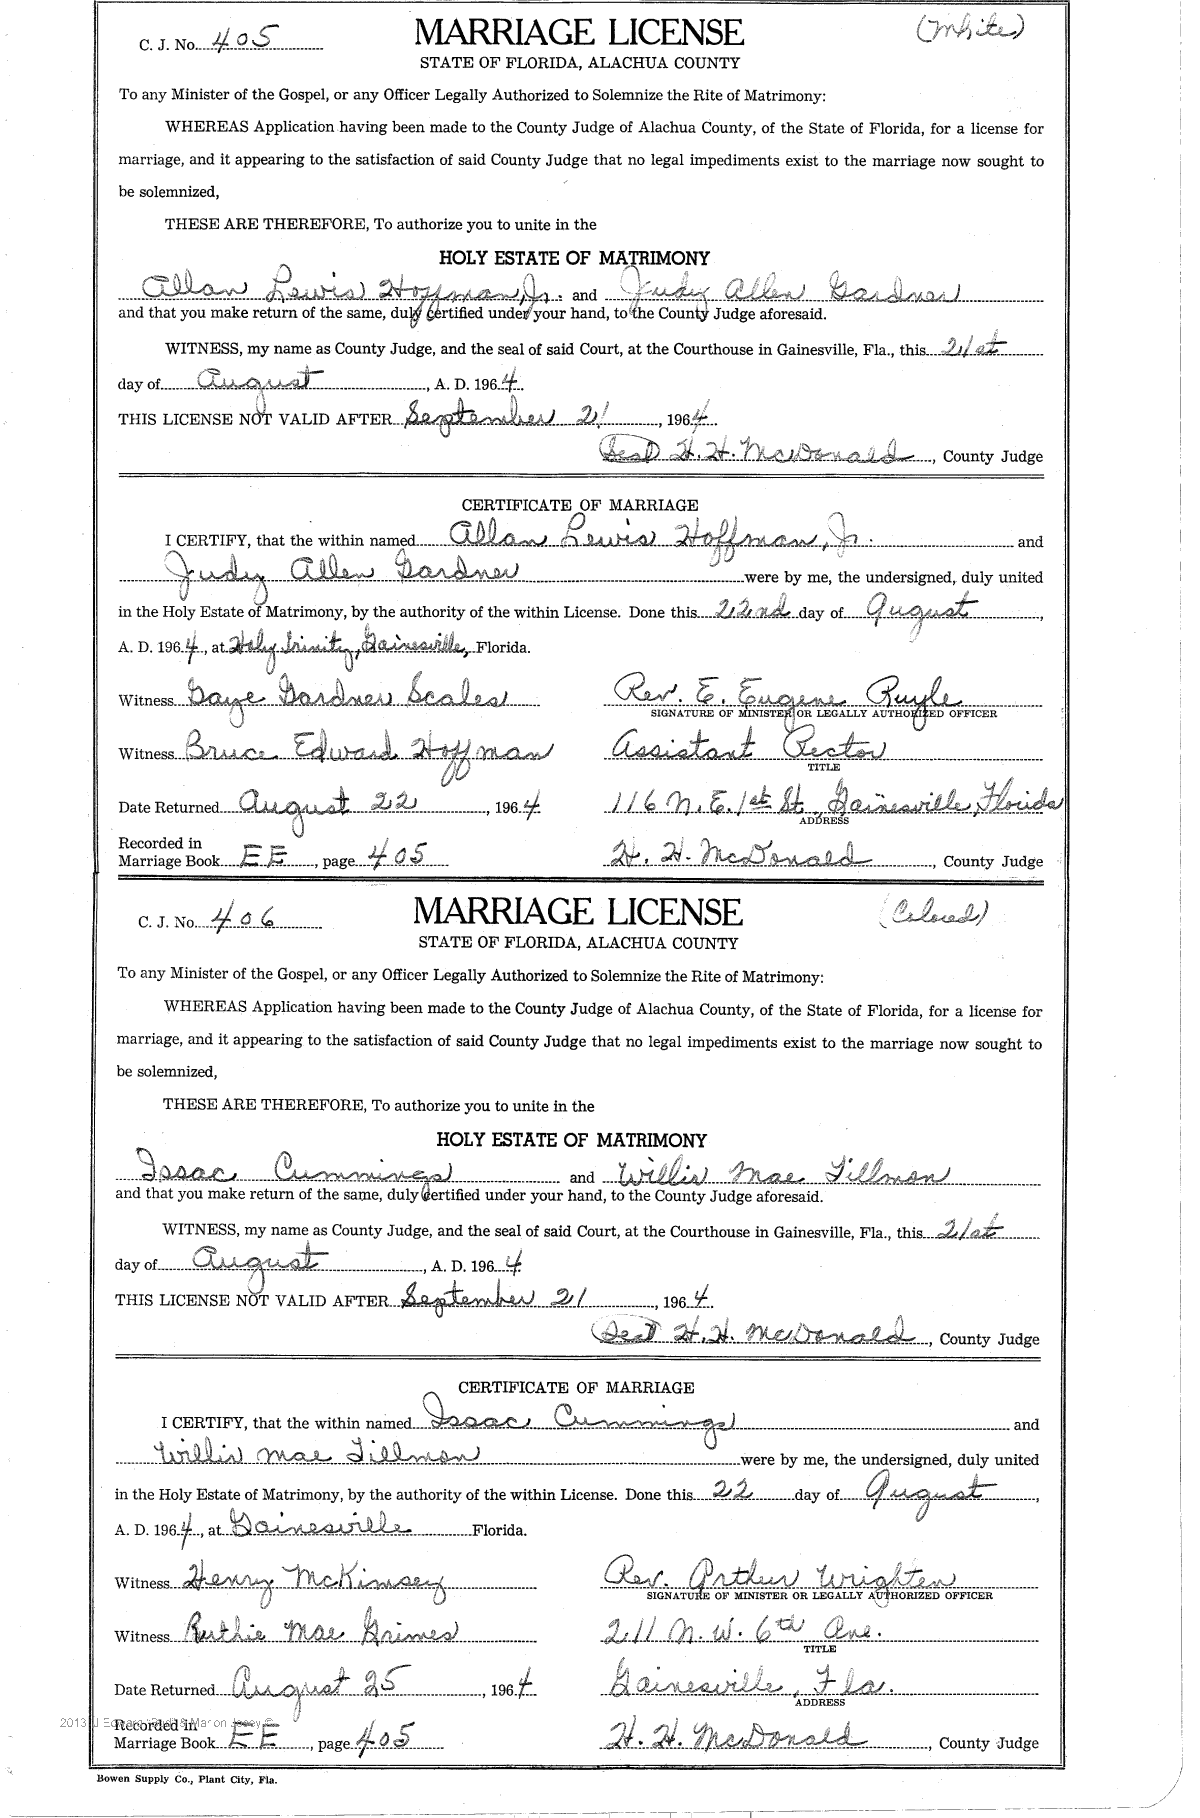 C. J. No. 405 MARRIAGE LICENSE (White)
STATE OF FLORIDA, ALACHUA COUNTY
To any Minister of the Gospel, or any Officer Legally Authorized to Solemnize the Rite of Matrimony:
WHEREAS Application having been made to the County Judge of Alachua County, of the State of Florida, for a license for
marriage, and it appearing to the satisfaction of said County Judge that no legal impediments exist to the marriage now sought to
be solemnized,
THESE ARE THEREFORE, To authorize you to unite in the
HOLY ESTATE OF MATRIMONY
Allan Lewis Hoffman, Jr. and Judy Allen Gardner
and that you make return of the same, duly certified under your hand, to the County Judge aforesaid.
WITNESS, my name as County Judge, and the seal of said Court, at the Courthouse in Gainesville, Fla., this 21st
day of August, A. D. 1964.
THIS LICENSE NOT VALID AFTER September 21, 1964.
(Seal) H. H. McDonald, County Judge
CERTIFICATE OF MARRIAGE
I CERTIFY, that the within named Allan Lewis Hoffman, Jr. and
Judy Allen Gardner were by me, the undersigned, duly united
in the Holy Estate of Matrimony, by the authority of the within License. Done this 22nd day of August,
A. D. 1964, at Holy Trinity, Gainesville, Florida.
Witness Gaye Gardner Scales Rev. E. Eugene Ruyle
SIGNATURE OF MINISTER OR LEGALLY AUTHORIZED OFFICER
Witness Bruce Edward Hoffman Assistant Rector
TITLE
Date Returned August 22, 1964 116 N. E. 1st St., Gainesville, Florida
ADDRESS
Recorded in
Marriage Book EE, page 405 H. H. McDonald, County Judge
C. J. No. 406 MARRIAGE LICENSE (Colored)
STATE OF FLORIDA, ALACHUA COUNTY
To any Minister of the Gospel, or any Officer Legally Authorized to Solemnize the Rite of Matrimony:
WHEREAS Application having been made to the County Judge of Alachua County, of the State of Florida, for a license for
marriage, and it appearing to the satisfaction of said County Judge that no legal impediments exist to the marriage now sought to
be solemnized,
THESE ARE THEREFORE, To authorize you to unite in the
HOLY ESTATE OF MATRIMONY
Issac Cummings and Willie Mae Tillmon
and that you make return of the same, duly certified under your hand, to the County Judge aforesaid.
WITNESS, my name as County Judge, and the seal of said Court, at the Courthouse in Gainesville, Fla., this 21st
day of August, A. D. 1964
THIS LICENSE NOT VALID AFTER September 21, 1964.
(Seal) H. H. McDonald, County Judge
CERTIFICATE OF MARRIAGE
I CERTIFY, that the within named Issac Cummings and
Willie Mae Tillmon were by me, the undersigned, duly united
in the Holy Estate of Matrimony, by the authority of the within License. Done this 22 day of August,
A. D. 1964, at Gainesville Florida.
Witness Henry McKimsey Rev. Arthur Wrighten
SIGNATURE OF MINISTER OR LEGALLY AUTHORIZED OFFICER
Witness Ruthie Mae Grimes 211 N. W. 6th Ave.
TITLE
Date Returned August 25, 1964 Gainesville, Fla.
ADDRESS
2013 J
Recorded in
Marriage Book EE, page 405 H. H. McDonald, County Judge
Bowen Supply Co., Plant City, Fla.